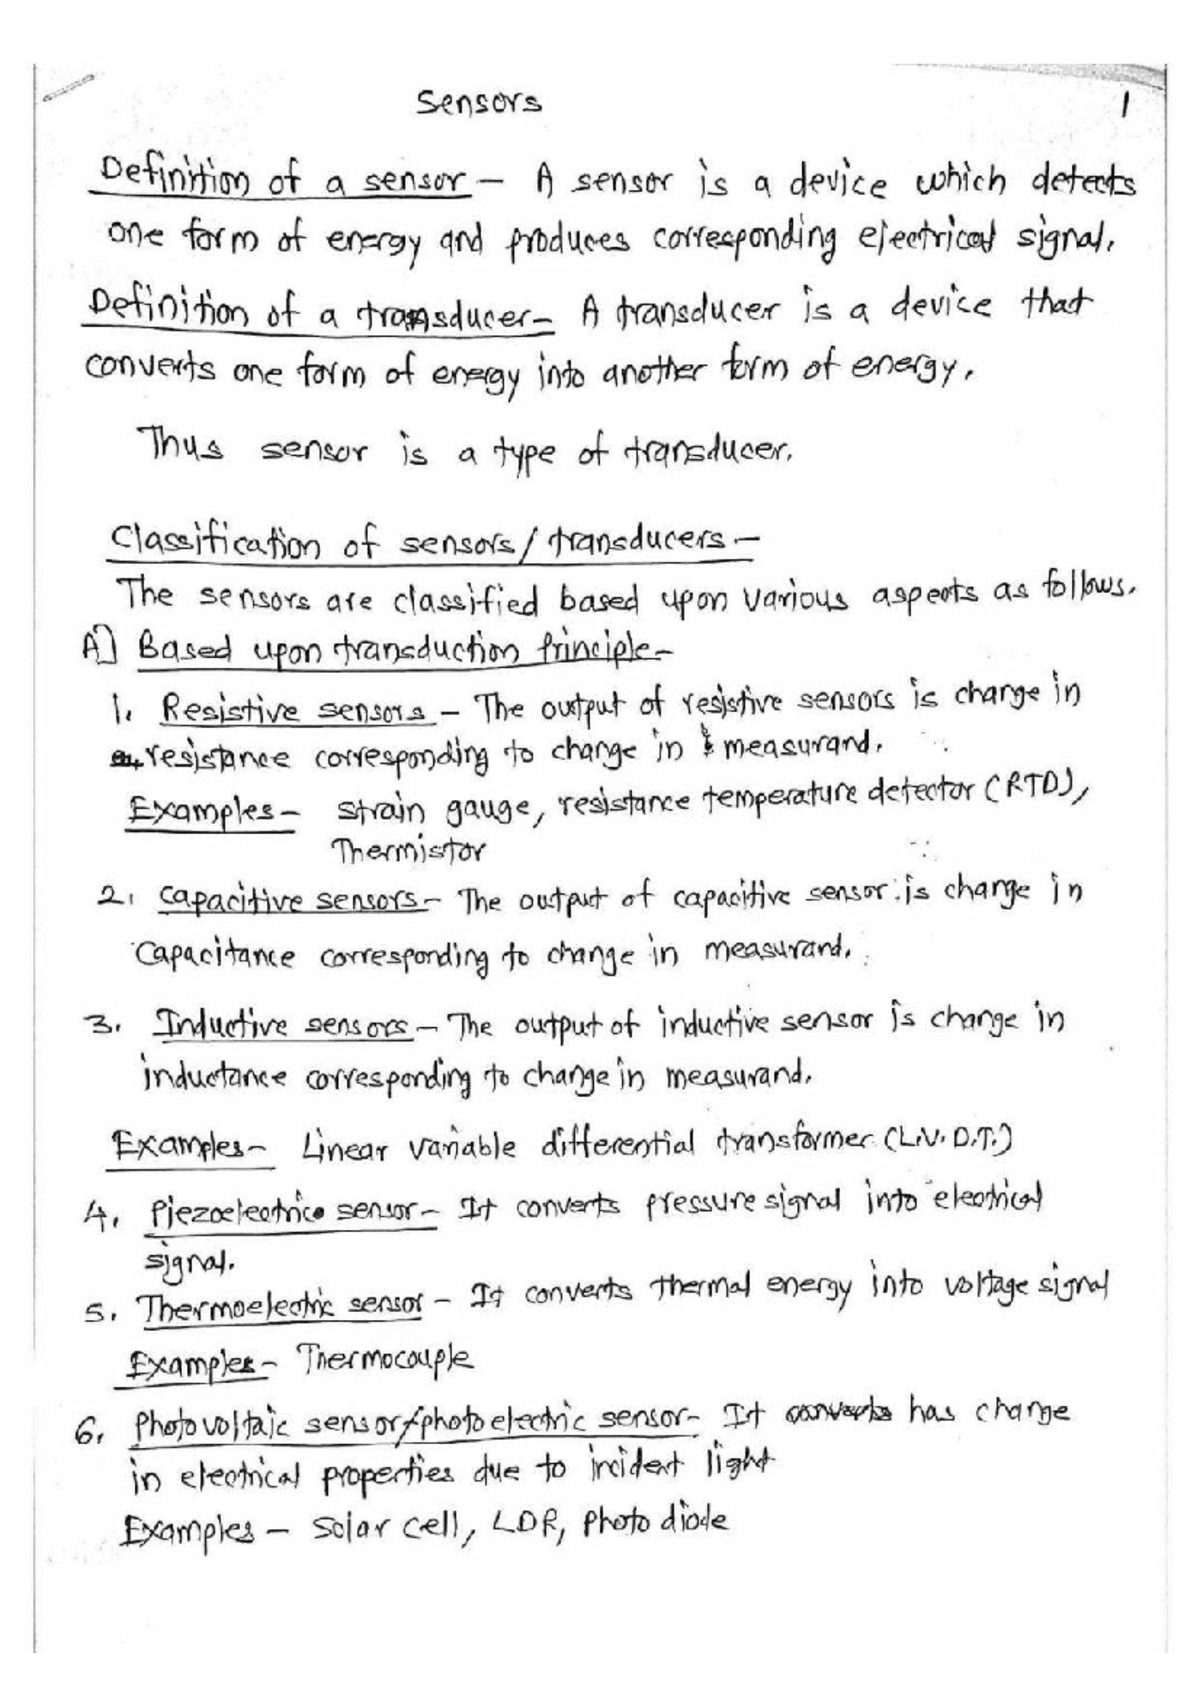 Sensors
1
Definition of a sensor - A sensor is a device which detects
one form of energy and produces corresponding electrical signal.
Definition of a transducer - A transducer is a device that
converts one form of energy into another form of energy.
Thus sensor is a type of transducer.
Classification of sensors / transducers -
The sensors are classified based upon various aspects as follows.
A] Based upon transduction principle -
1. Resistive sensors - The output of resistive sensors is change in
resistance corresponding to change in measurand.
Examples - strain gauge, resistance temperature detector (RTD),
Thermistor
2. Capacitive sensors - The output of capacitive sensor is change in
Capacitance corresponding to change in measurand.
3. Inductive sensors - The output of inductive sensor is change in
inductance corresponding to change in measurand.
Examples - Linear variable differential transformer (L.V.D.T.)
4. Piezoelectric sensor - It converts pressure signal into electrical
signal.
5. Thermoelectric sensor - It converts thermal energy into voltage signal
Examples - Thermocouple
6. Photovoltaic sensor/photoelectric sensor - It converts has change
in electrical properties due to incident light
Examples - Solar cell, LDR, Photo diode